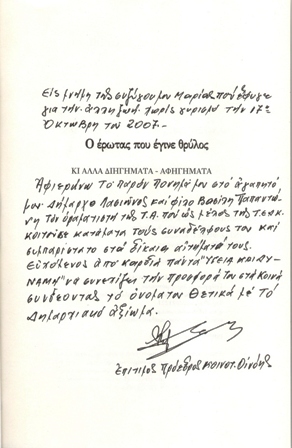 Εις μνήμη της συζύγου μου Μαρίας που έφυγε
για την άλλη ζωή χωρίς γυρισμό την 17η
Οκτώβρη του 2007-
Ο έρωτας που έγινε θρύλος
ΚΙ ΑΛΛΑ ΔΙΗΓΗΜΑΤΑ - ΑΦΗΓΗΜΑΤΑ
Αφιερώνω το παρόν πόνημά μου στό αγαπητό
μου Δήμαρχο και φίλο Παπαντώ-
νη τον οραματιστή της Τ.Α. που ως μέλος της
κοιτούσε κατάματα τους συναδέλφους του και
συμπαρίστατο στα δίκαια αιτήματά τους.
Ευχόμενος από καρδιά πάντα "ΥΓΕΙΑ ΚΑΙ ΔΥ-
ΝΑΜΗ" να συνεχίζει την προσφορά του στα Κοινά
συνδέοντας τό όνομά του θετικά με τό
Δημαρχιακό αξίωμα.
Επίτιμος Πρόεδρος Κοινοτ. Οινόης